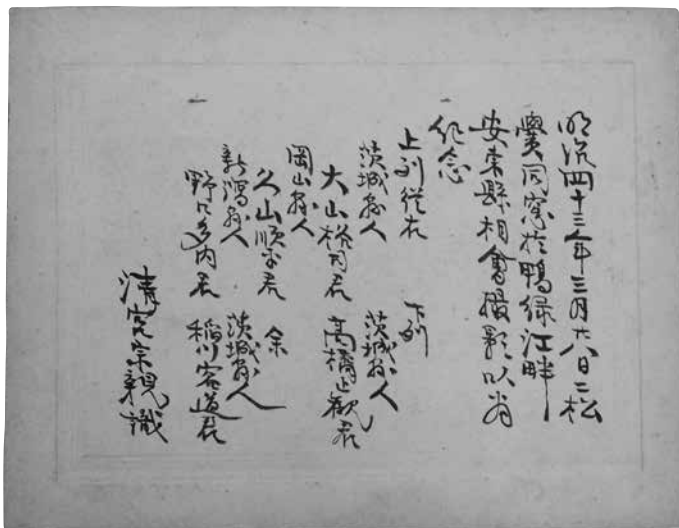 明治四十三年三月六日二松
黌同窓於鴨緑江畔
安東縣相會撮影以為
紀念
上列従右
茨城縣人
大山格司君
岡山縣人
久山順平君
新潟縣人
野口多内君
下列
茨城縣人
高橋止観君
余
茨城縣人
稲川容道君
清宮宗親識